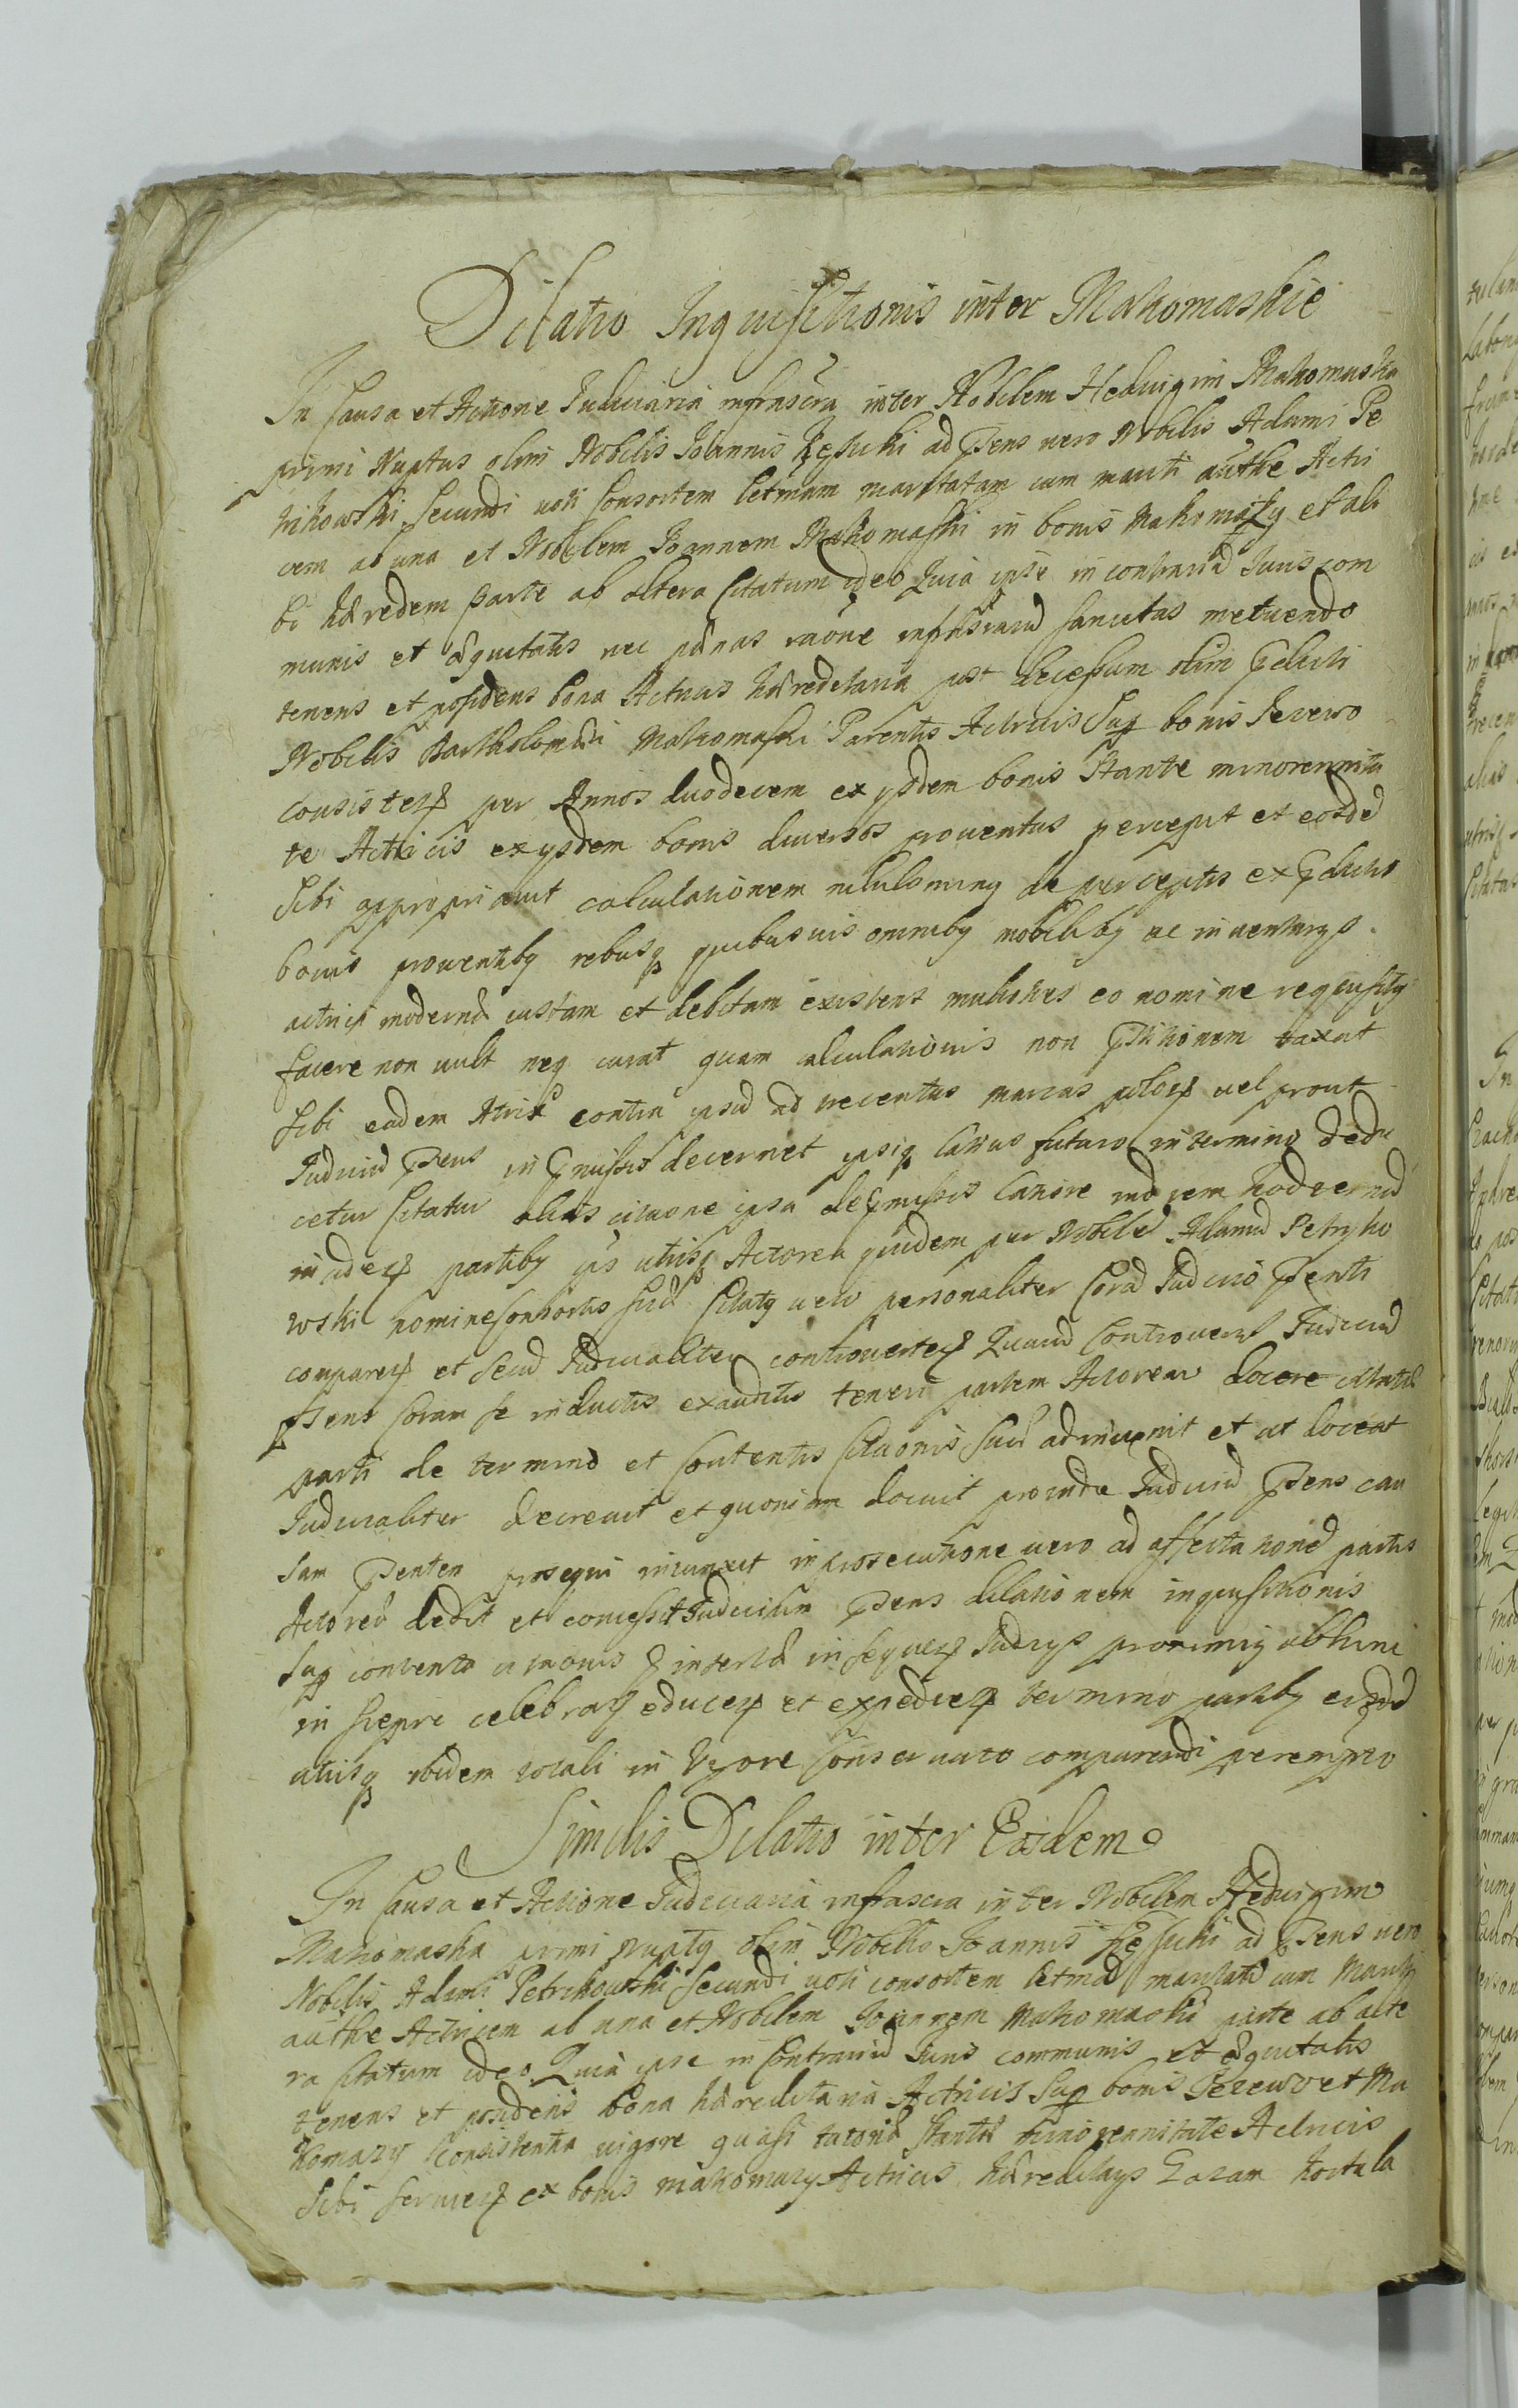 Dilatio Inquisitionis inter Makomaskie
In Causa et Actione Judiciaria infrascra inter Nobilem Hedvigim Makomaska
primi Nuptus olim Nobilis Joannis ad Pens vero Nobilis Adami Pe
trikowski secundi voti Consortem letmam maritatam cum mariti authe Actri
cem ab una et Nobilem Joannem Makomaski in bonis Makomazy et ali
bi hæredem parte ab altera Citatum ideo Quia ipse in contrariu Juris com
munis et æquitatis nec pænas raõne infrascriarud sancitas metuendo
tenens et possidens bona Actricis hæreditaria post decessum olim Pdicti
Nobilis Bartholomæi Makomaski Parentis Actricis Sup bonis Jezewo
consisten per Annos duodecem ex ysdem bonis Stante minorennita
te Actricis ex ysdem bonis diversos proventus percepit et eosdē
Sibi appropriavit calculationem nihilominq de perceptis ex Pdictis
bonis proventibq rebusq quibusvis omnibq mobilibq ac inventarys
actrici modernæ iustam et debitam existens multoties eo nomine requisitq
facere non vult neq curat quam calculationis non Ptitionem taxat
sibi eadem Atrix contra ipsū ad trecentas marcas pelles vel prout
Judiciū Pens in Pmissis decernet ipsiq latius futuro in termino dedu
cetur Citatur alias citaõne ipsa de Pmissis latiore indicem hodiernū
inciden partibq ys utrisq Actorea quidem per Nobilē Adamū Petryko
wski nomine Consortis suæ Citatq vero personaliter Corā Judicio Penti
comparen et secū Judicialiter controverten Quarū Controversys Judiciū
Pens Coram se inductis exauditis teneri partem Actoream docere citatæ
parti de termino et Contentis Citaõnis suæ adinvenit et ut doceat
Judicialiter decrevit et quoniam docuit proinde Judiciū Pens cau
sam Pentem prosequi iniunxit in prosecutione vero ad affectationē partis
Actoreæ dedit et concessit Judicium Pens dilationem inquisitionis
Sup contenta citaõnis P insertæ in sequen Judicys proximis abhinc
in Srzepre celebran educen et expedien termino partibq eisdē
utrisq ibidem totali in vigore Conservato comparendi perempto
Similis Dilatio inter Easdem
In Causa et Actione Judiciaria infrascra inter Nobilem Hedvigim
Makomaska primi nuptq olim Nobilis Joannis ad Pens vero
Nobilis Adami Petrikowski secundi voti consortem letmā maritatā cum Mariti
authe Actricem ab una et Nobilem Joannem Makomaski parte ab alte
ra Citatum ideo Quia ipse in Contrariū Juris communis et æquitatis
tenens et possidens bona hæreditaria Actricis Sup bonis Jezewo et Ma
komazy Consistentia vigore quasi tutoriæ stante minorennitate Actricis
Sibi servien ex bonis makomazy Actricis hæreditarys Lozam hortula